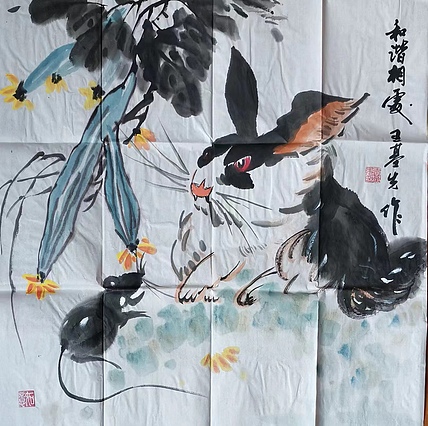 和谐相處 王基先作